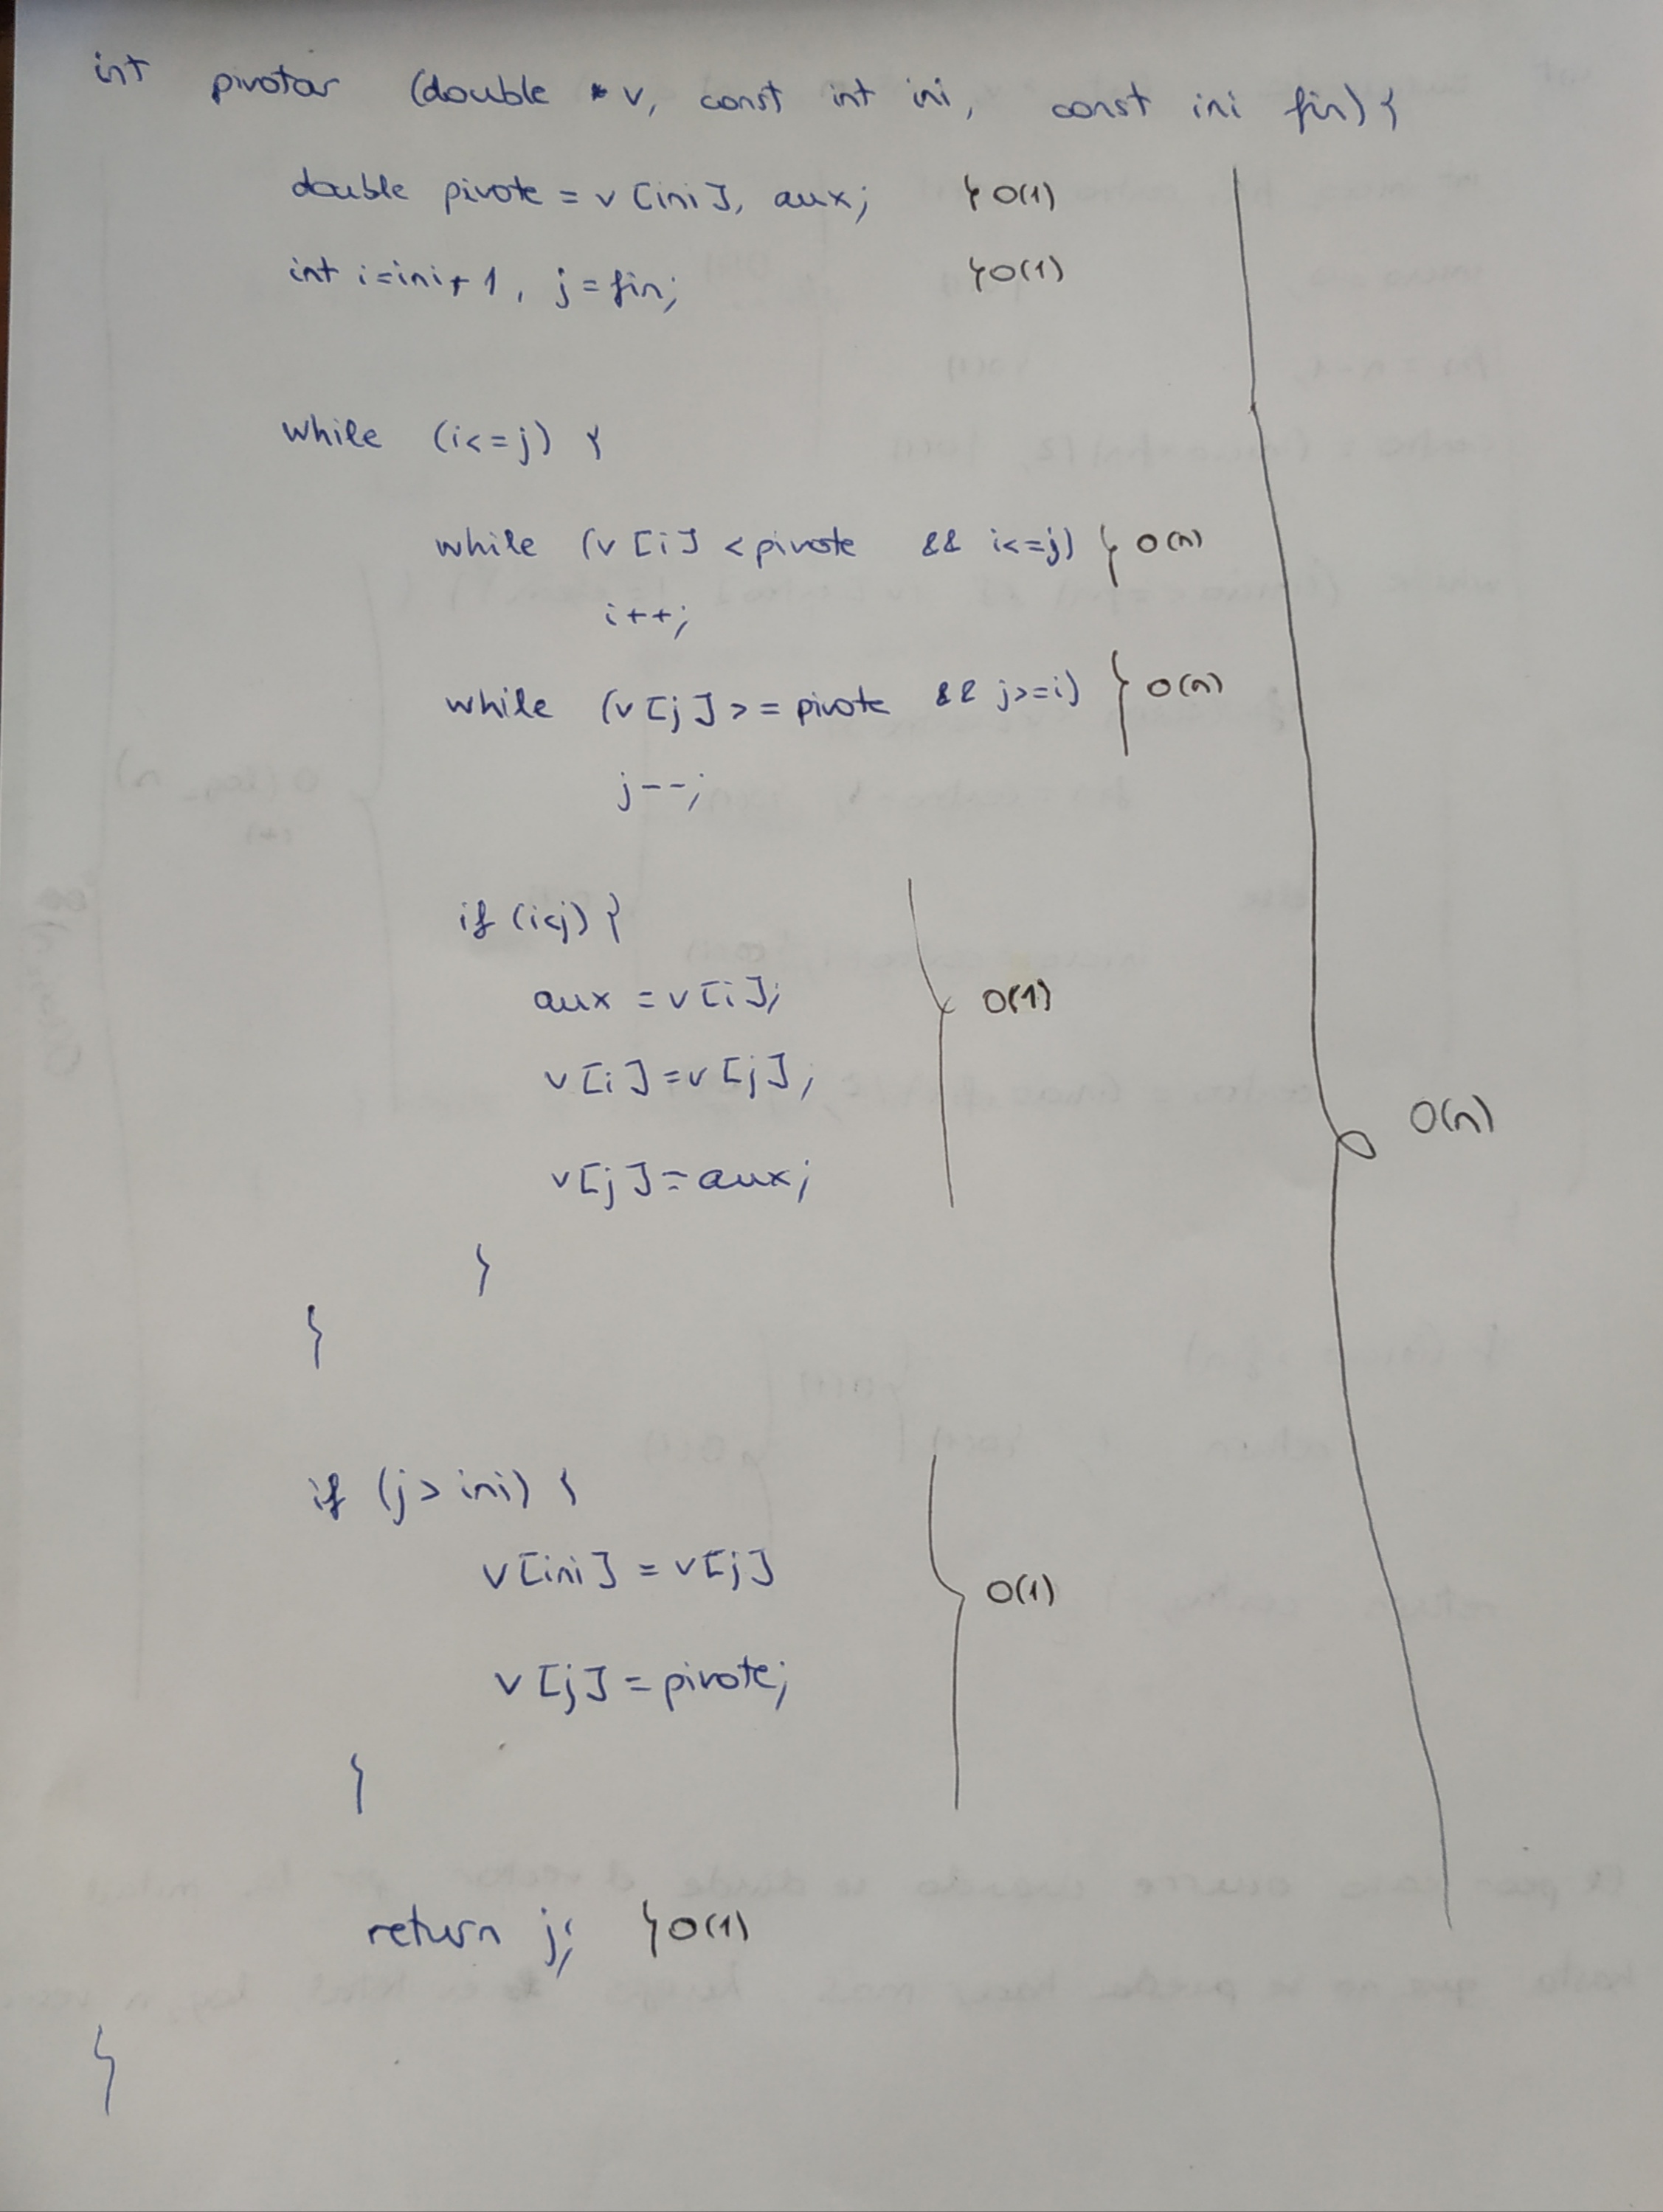 int pivotar (double * v, const int ini, const ini fin) {
double pivote = v [ini], aux; } O(1)
int i=ini+1, j=fin; } O(1)
while (i<=j) {
while (v [i] < pivote && i<=j) } O(n)
i++;
while (v [j] >= pivote && j>=i) } O(n)
j--;
if (i<j) {
aux = v[i]; } O(1)
v [i] = v [j];
O(n)
v[j] = aux;
}
}
if (j > ini) {
v[ini] = v[j] } O(1)
v [j] = pivote;
}
return j; } O(1)
}